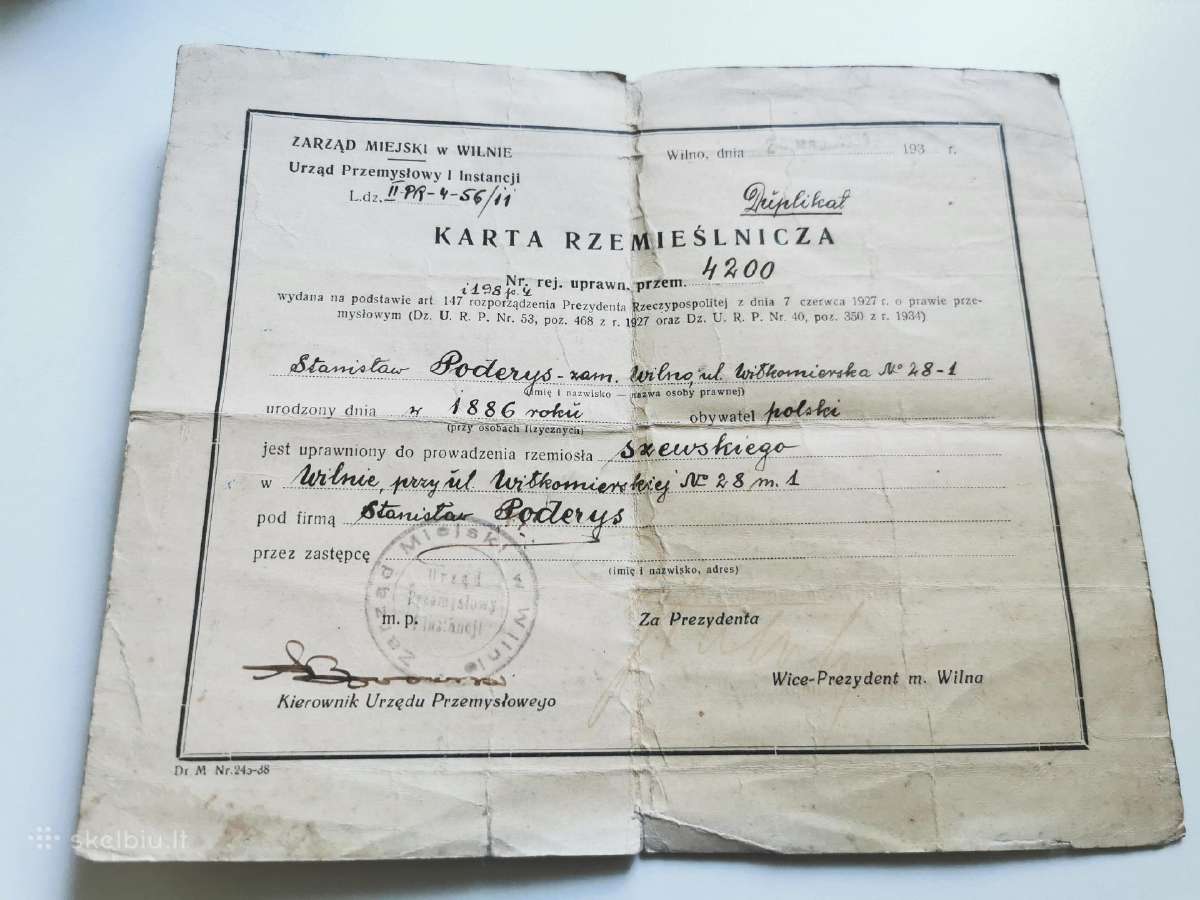 ZARZĄD MIEJSKI w WILNIE
Urząd Przemysłowy I Instancji
L.dz. II-PR-4-56/11
Wilno, dnia 193 r.
Duplikat
KARTA RZEMIEŚLNICZA
Nr. rej. uprawn. przem. 4200
i 198 p. 4
wydana na podstawie art. 147 rozporządzenia Prezydenta Rzeczypospolitej z dnia 7 czerwca 1927 r. o prawie prze-
mysłowym (Dz. U. R. P. Nr. 53, poz. 468 z r. 1927 oraz Dz. U. R. P. Nr. 40, poz. 350 z r. 1934)
Stanisław Poderys - zam. Wilno, ul. Wiłkomierska No 28-1
(imię i nazwisko — nazwa osoby prawnej)
urodzony dnia w 1886 roku obywatel polski
(przy osobach fizycznych)
jest uprawniony do prowadzenia rzemiosła szewskiego
w Wilnie, przy ul. Wiłkomierskiej No 28 m. 1
pod firmą Stanisław Poderys
przez zastępcę
(imię i nazwisko, adres)
Zarząd Miejski w Wilnie
Urząd
Przemysłowy
I Instancji
m. p.
Za Prezydenta
Kierownik Urzędu Przemysłowego
Wice-Prezydent m. Wilna
Dr. M Nr. 245-38
skelbiu.lt